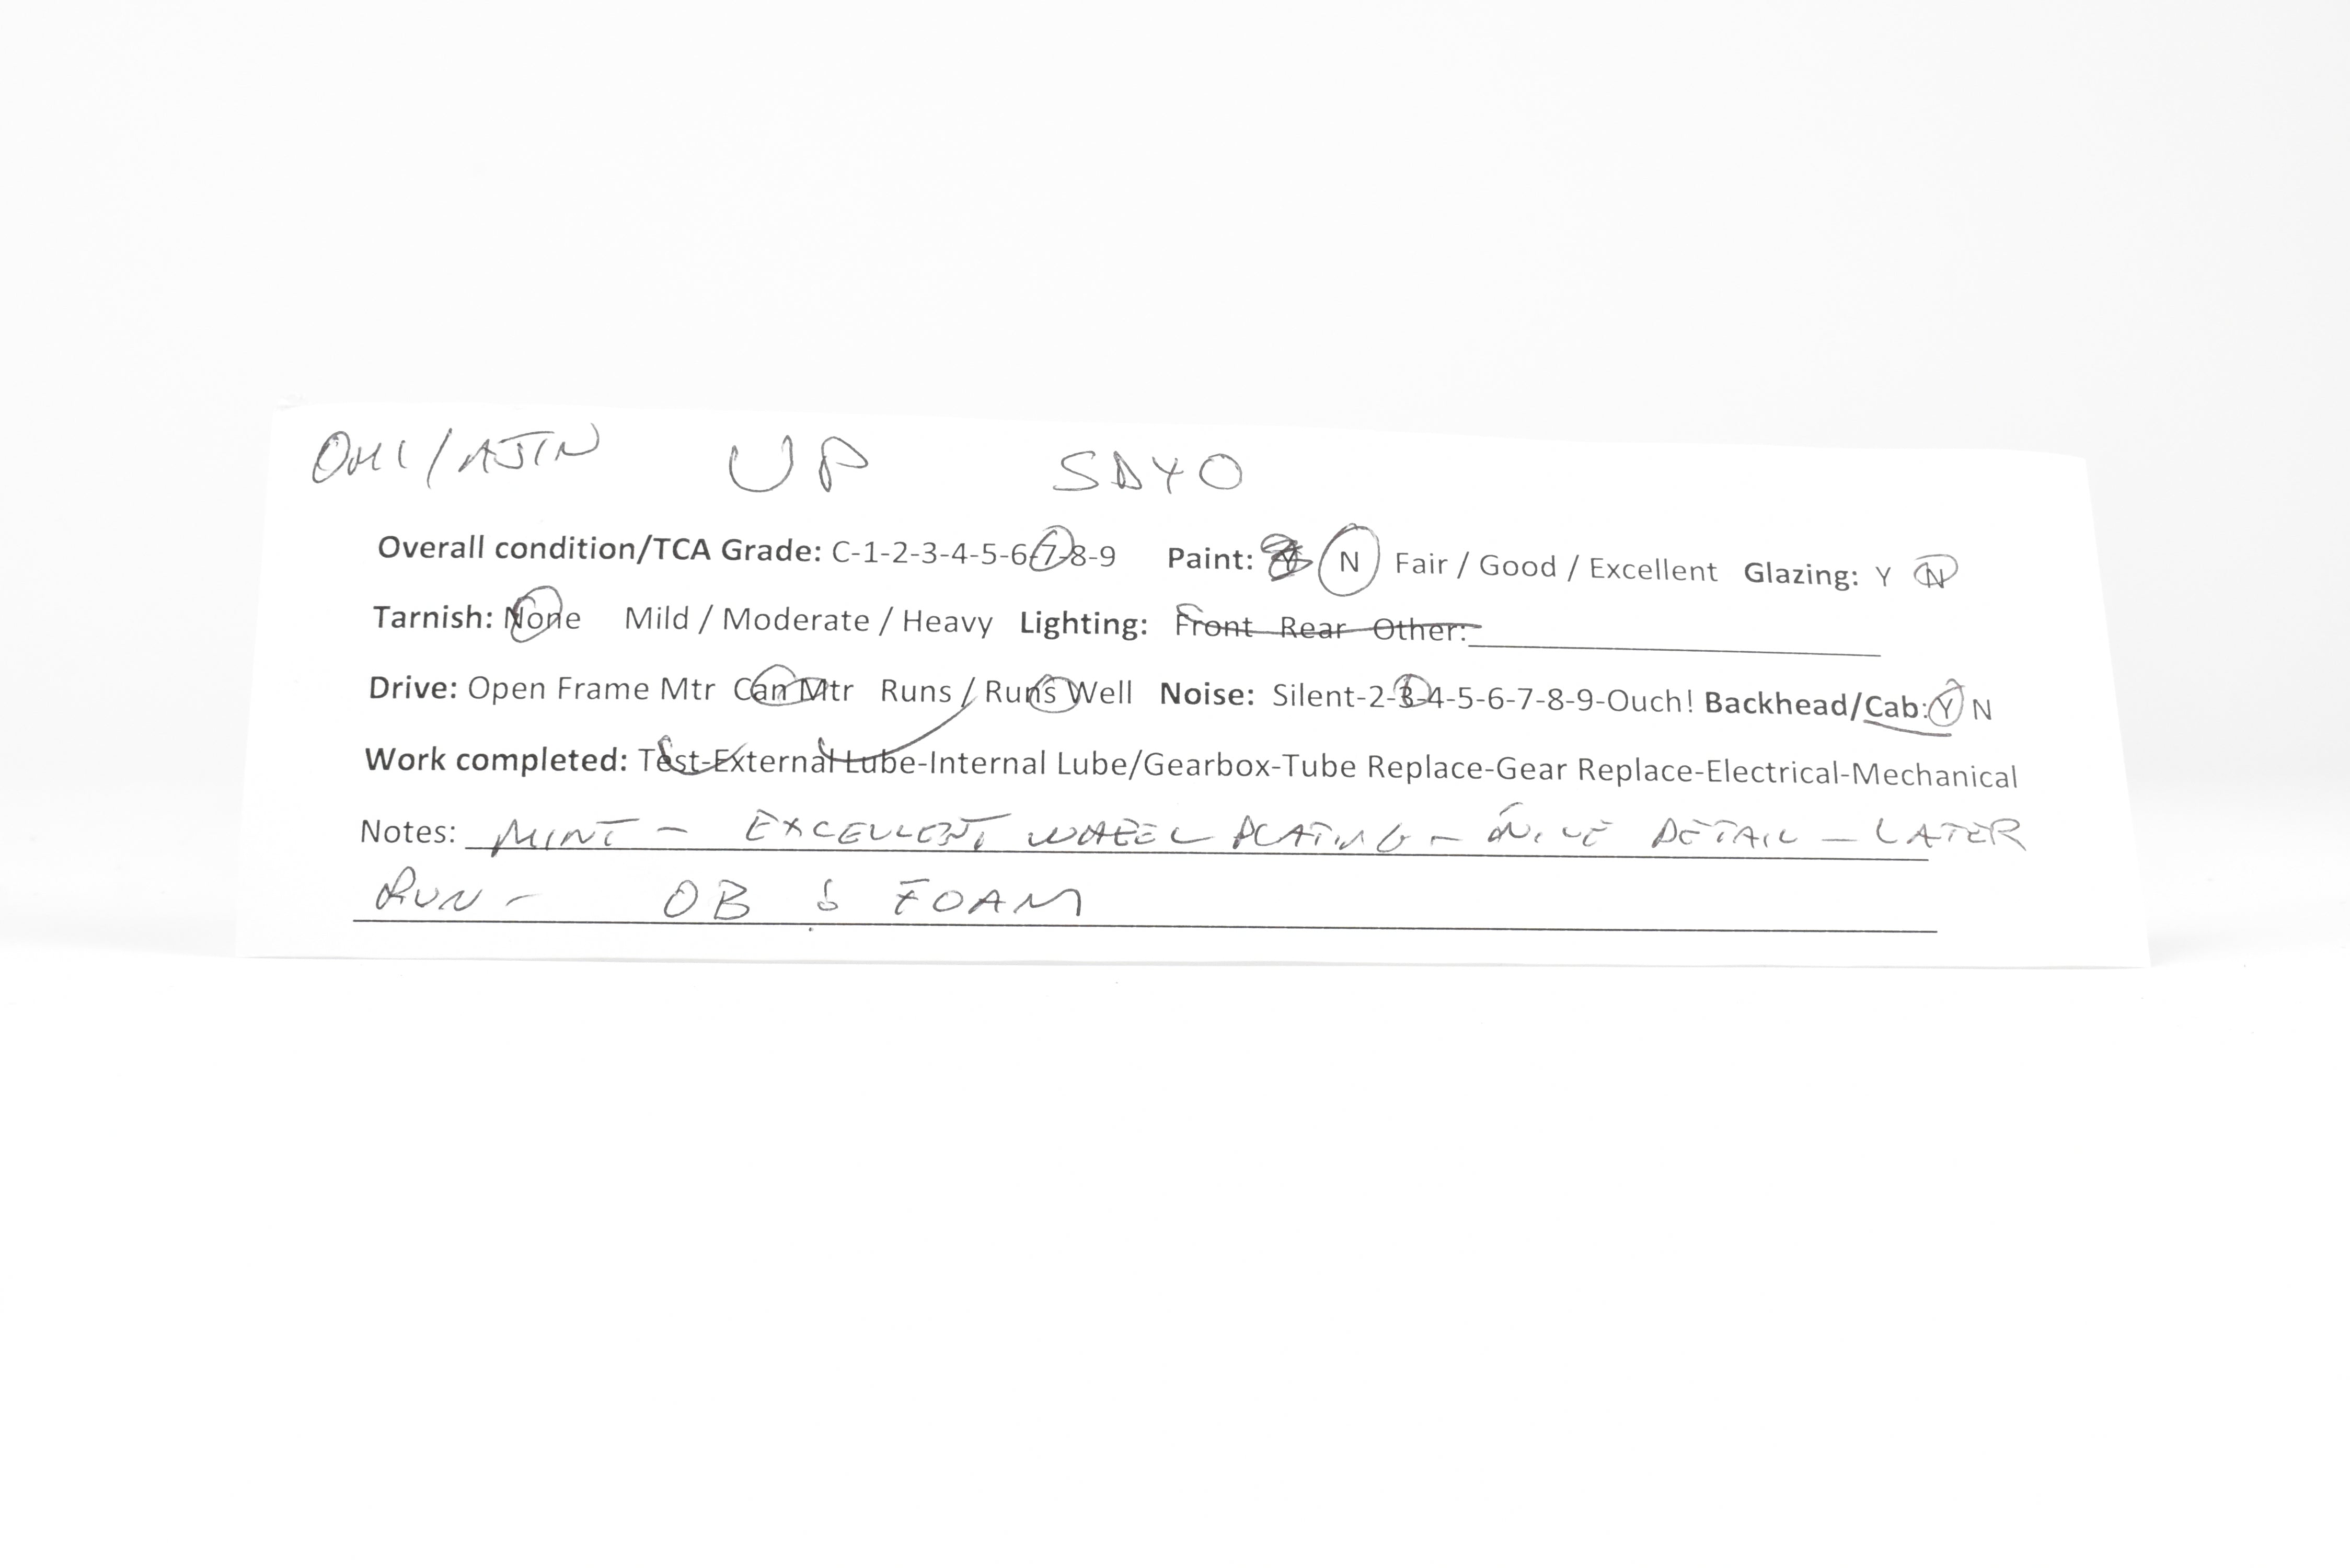 OMI/AJIN UP SD40
Overall condition/TCA Grade: C-1-2-3-4-5-6-7-8-9 Paint: Y N Fair / Good / Excellent Glazing: Y N
Tarnish: None Mild / Moderate / Heavy Lighting: Front Rear Other:
Drive: Open Frame Mtr Can Mtr Runs / Runs Well Noise: Silent-2-3-4-5-6-7-8-9-Ouch! Backhead/Cab: Y N
Work completed: Test-External Lube-Internal Lube/Gearbox-Tube Replace-Gear Replace-Electrical-Mechanical
Notes: MINT - EXCELLENT WHEEL PLATING - NICE DETAIL - LATER
RUN - OB & FOAM